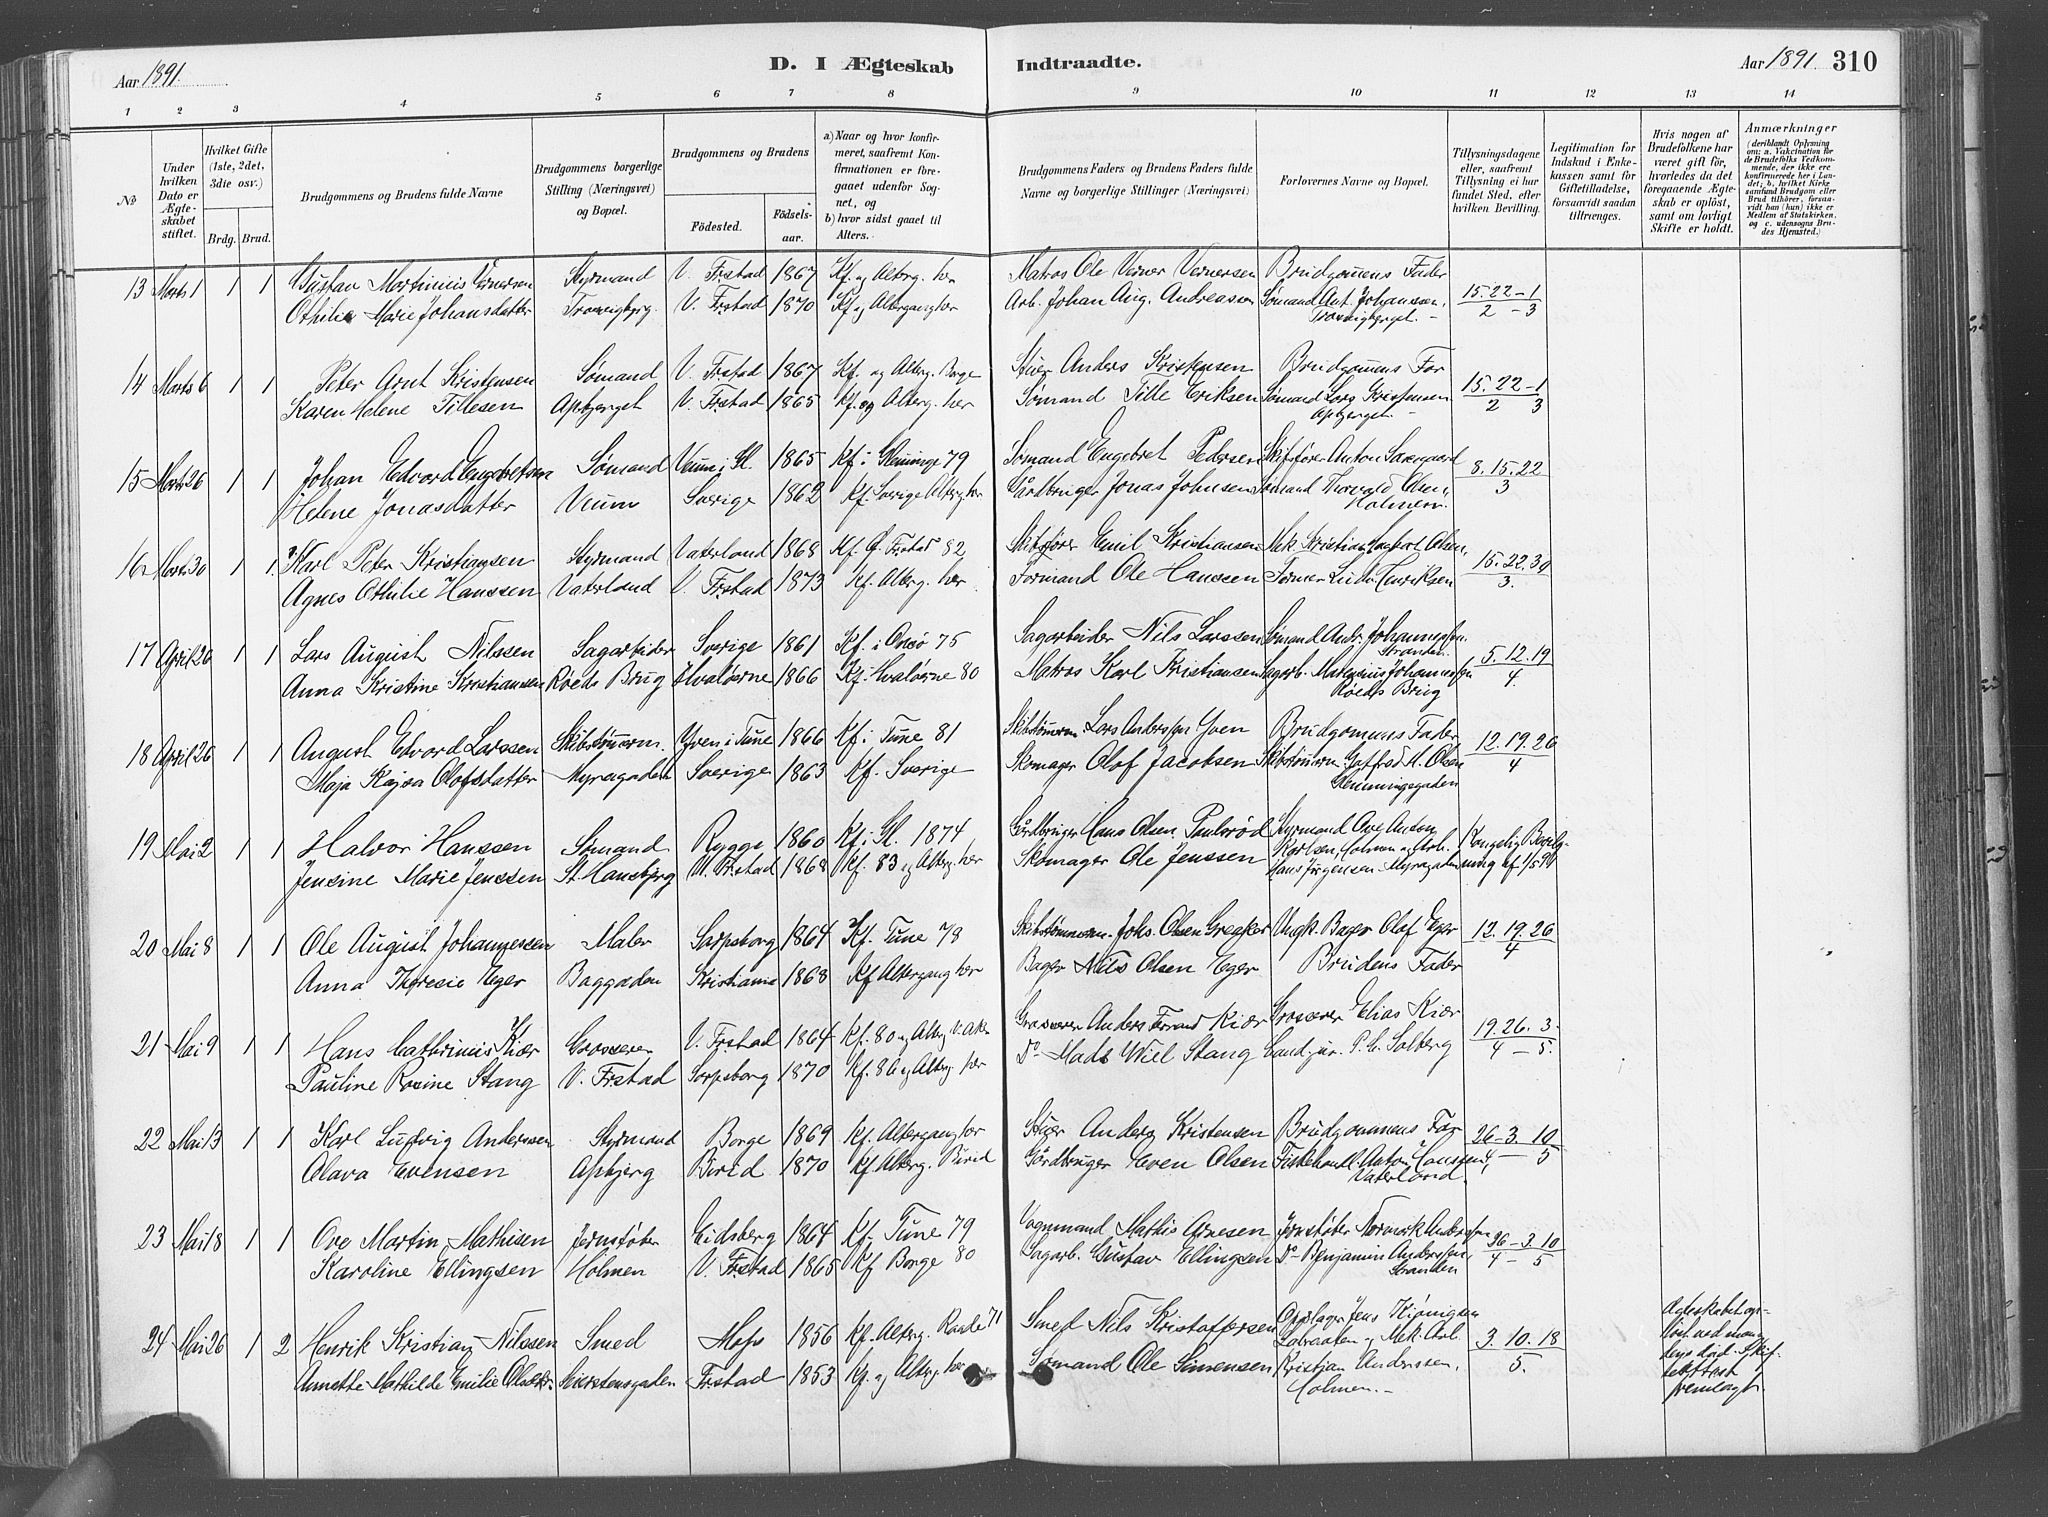 Aar 1891. D. I Ægteskab Indtraadte. Aar 1891. 310
1 2 3 4 5 6 7 8 9 10 11 12 13 14
No
Under hvilken Dato er Ægteskabet stiftet.
Hvilket Gifte (1ste, 2det, 3die osv.)
Brdg. Brud.
Brudgommens og Brudens fulde Navne
Brudgommens borgerlige Stilling (Næringsvei) og Bopæl.
Brudgommens og Brudens
Födested. Födselsaar.
a) Naar og hvor konfirmeret, saafremt Konfirmationen er foregaaet udenfor Sognet, og
b) hvor sidst gaaet til Alters.
Brudgommens Faders og Brudens Faders fulde Navne og borgerlige Stillinger (Næringsvei)
Forlovernes Navne og Bopæl.
Tillysningsdagene eller, saafremt Tillysning ei har fundet Sted, efter hvilken Bevilling.
Legitimation for Indskud i Enkekassen samt for Giftetilladelse, forsaavidt saadan tiltrænges.
Hvis nogen af Brudefolkene har været gift för, hvorledes da det foregaaende Ægteskab er oplöst, samt om lovligt Skifte er holdt.
Anmærkninger (deriblandt Oplysning om: a. Vakcination for de Brudefolks Vedkommende, der ikke ere konfirmerede her i Landet; b. hvilket Kirkesamfund Brudgom eller Brud tilhörer, forsaavidt han (hun) ikke er Medlem af Statskirken, og c. udensogns Brudes Hjemsted.)
13 Marts 1 1 1 Gustav Martinius Vernersen Styrmand V. Frstad 1867 Kf. og Alterg. her Matros Ole Verner Vernersen Brudgomens Fader
Othilie Marie Johansdatter Trosvigbjerg. V. Frstad 1870 Kf og Altergang her Arb. Johan Aug. Andreassen Sømand Ant. Johanssen, 15. 22 – 1
Trosvigberget. – 2 – 3
14 Marts 6 1 1 Peter Arnt Kristensen Sømand V. Frstad 1867 Kf. og Alterg. Borge Stuer Anders Kristensen Brudgomens Far
Karen Helene Tillesen Apbjerget V. Frstad 1865 Kf. og Alterg. her Sømand Tille Eriksen Sømand Lars Kristensen 15. 22 – 1
Apbjerget. – 2 3
15 Marts 26 1 1 Johan Edvard Engebretsen Sømand Veum i Gl. 1865 Kf. i Glemminge 79 Sømand Engebret Pedersen Skibsfører Anton Saxegaard 8. 15. 22
Helene Jonasdatter Veum Sverige 1862 Kf. Sverige Alterg her Gårdbruger Jonas Johnsen Sømand Thorvald Olsen, 3
Holmen.
16 Marts 30 1 1. Karl Peter Kristiansen Styrmand Vaterland 1868 Kf. Ø. Frstad 82 Skibsfører Emil Kristiansen Mek. Kristian Hagbart Olsen, 15. 22. 30
Agnes Othilie Hanssen Vaterland V. Frstad 1873 Kf. Alterg. her Formand Ole Hanssen Former Ludv. Henriksen 3.
17 April 26 1 1 Lars August Nilssen Sagarbeider Sverige 1861 Kf. i Onsø 75 Sagarbeider Nils Larssen Sømand Andr. Johannessen.
Stranden.
Anna Kristine Kristiansen Røeds Brug Hvaløerne 1866 Kf. Hvaløerne 80 Matros Karl Kristiansen Sagarb. Johannessen 5. 12. 19
Røeds Brug 4.
18 April 26 1 1 August Edvard Larssen Skibstømerm. Yven i Tune 1866 Kf. i Tune 81 Skibstømerm. Lars Anderssen Yven Brudgomens Fader 12. 19. 26
Maja Kajsa Olofsdatter Myragaden Sverige 1863 Kf. Sverige Skomager Olof Jacobsen Skibstømerm Gotfred M. Olsen 4
Glemmingegaden
19 Mai 2 1 1 Halvor Hanssen Sømand Rygge 1860 Kf. i Gl. 1874 Gårdbruger Hans Olsen Paulsrød Styrmand Ove Anton
Karlsen, Holmen og Arb. Kongelig Bevilg-
Jensine Marie Jenssen St. Hansbjerg V. Frstad 1868 Kf. 83 og Alterg. her Skomager Ole Jenssen Hans Jørgensen Myragaden ning af 1/5 91
20 Mai 8 1 1 Ole August Johannessen Maler Sarpsborg 1864 Kf. Tune 78 Skibstømerm. Johs. Olsen Greaker Ungk. Bager Olaf Eger 12. 19. 26
Anna Theresie Eger Baggaden Kristiania 1868 Kf Altergang her Bager Nils Olsen Eger Brudens Fader 4
21 Mai 9 1 1 Hans Cathrinus Kiær Grosserer V. Frstad 1864 Kf. 80 og Alterg V. Aker Grosserer Anders Ferrand Kiær Grosserer Elias Kiær 19. 26. 3.
Pauline Rosine Stang V. Frstad Sarpsborg 1870 Kf. 86 og Alterg. her Do – Mads Wiel Stang Cand. jur. P. C. Solberg 4 – 5.
22 Mai 13 1 1 Karl Ludvig Anderssen Styrmand Borge 1869 Kf. Altergang her Stuer Anders Kristensen Brudgommens Far 26 – 3. 10
Olava Evensen Apbjerg Birid 1870 Kf. Alterg. Birid Gårdbruger Even Olsen Fiskehandl. Anton Hanssen, 4 – 5
Vaterland.
23 Mai 18 1 1 Ove Martin Mathisen Jernstøber Eidsberg 1864 Kf. Tune 79 Vognmand Mathis Arnesen Jernstøber Anderssen
Karoline Ellingsen Holmen V. Frstad 1865 Kf Borge 80 Sagarb. Gustav Ellingsen Do – Benjamin Anderssen, 26 – 3. 10
Stranden 4 – 5
24 Mai 26 1 2 Henrik Kristian Nilssen Smed Moss 1856 Kf. Alterg. Raade 71 Smed Nils Kristoffersen Jens 3. 10. 18
og Mek. Arb. 5.
Annette Mathilde Emilie Frstad 1853 Kf. og Alterg. her Sømand Ole Simensen Kristian Anderssen,
Holmen. –
Ægteskabet op-
løst ved man-
dens død. Skif-
teattest
fremlagt